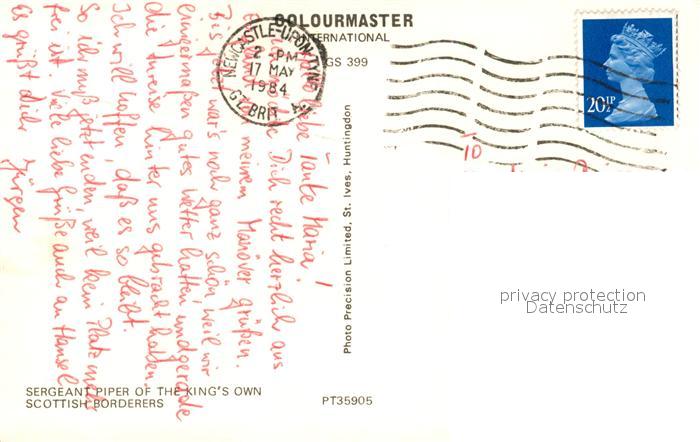 COLOURMASTER
INTERNATIONAL
GS 399
NEWCASTLE-UPON-TYNE
2 PM
17 MAY
1984
GT. BRIT.
20½P
10
liebe Tante Maria!
Dich recht herzlich aus
meinem Manöver grüßen.
Bis war's noch ganz schön, weil wir
einigermaßen gutes Wetter hatten und gerade
die hinter uns gebracht haben.
Ich will hoffen, daß es so bleibt.
So ich muß jetzt enden, weil kein Platz mehr
frei ist. Viele liebe Grüße auch an Hansel
Es grüßt dich Jürgen
Photo Precision Limited, St. Ives, Huntingdon
privacy protection
Datenschutz
SERGEANT PIPER OF THE KING'S OWN
SCOTTISH BORDERERS
PT35905